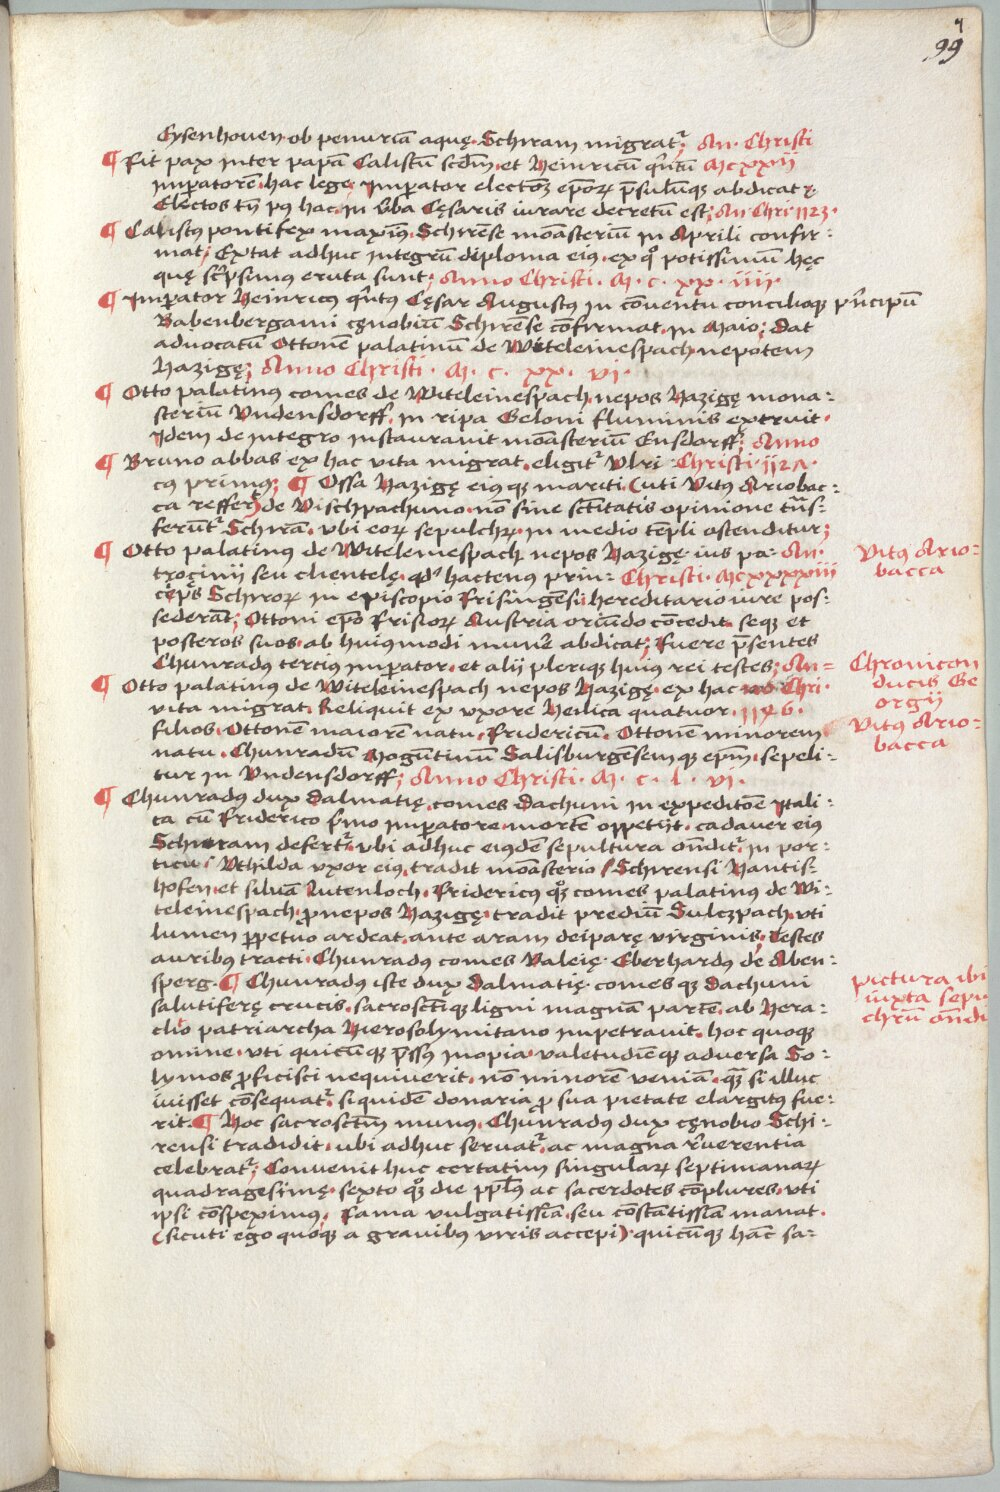 4
99
Eysenhoven ob penuriā aquę. Schiram migratᷣ; An. Christi
¶ Fit pax inter papā Calistū scd̄m. et Heinricū qͥntū Mcxxii
imꝑatorē. hac lege. Imꝑator electoꝝ ep̄oꝝ p̄sulūqꝫ abdicat ę.
Electos tn̄ pꝰ hac. in v̄ba Cęsaris iurare decretū est; An Chri 1123.
¶ Calistꝰ pontifex maxiꝰ. Schirēse mōasteriū in Aprili confir:
mat; Extat adhuc integrū diploma eiꝰ. ex qͦ potissimū hęc
quę scͥpsimus eruta sunt; Anno Christi. M. c. xx. iiii.
¶ Imꝑator Heinricꝰ qͥntꝰ Cęsar Augustꝰ in cōventu concilioqꝫ pͥncipū
Babenbergami cęnobiū Schirēse cōfirmat. in Maio; dat
advocatū Ottonē palatinū de Witeleinespach nepotem
Hazigę; Anno Christi. M. c. xx. vi.
¶ Otto palatinꝰ comes de Witeleinespach. nepos Hazigę mona:
steriū Undensdorff. in ripa Geloni fluminis extruit.
Idem de integro instauravit mōasteriū Ensdorff; Anno
¶ Bruno abbas ex hac vita migrat. eligitᷣ Ulri Christi. 1127.
cꝰ primꝰ; ¶ Ossa Hazigę eiusqꝫ mariti. (uti Vitꝰ Ariobac:
ca reffert) de Vischpachuno. nō sine sct̄itatis opinione trā̄s:
ferūtᷣ Schirā. ubi eoꝝ sepulchꝝ. in medio tēpli ostenditur;
¶ Otto palatinꝰ de Witeleinespach nepos Hazigę ius pa: An.
trocinii seu clientelę. qd̕ hactenus prin: Christi. Mcxxxxiii
cēps Schiroꝝ in episcopio Frisingēsi. hereditario iure pos:
sederāt; Ottoni ep̄o Frisioꝝ Austria oriūdo cōcedit. seqꝫ et
posteros suos. ab huiusmodi mun̄e abdicat; Fuere p̄sentes
Chunradꝰ tercius imꝑator. et alij pleriqꝫ huiꝰ rei testes; An:
¶ Otto palatinꝰ de Witeleinespach nepos Hazigę. ex hac no Chri.
vita migrat. Reliquit ex uxore Heilica quatuor. 1146.
filios. Ottonē maiorē natu. Fridericū. Ottonē minorem
natu. Chunradū Mogūtinū Salisburgēsem qꝫ ep̄m. sepeli:
tur in Undensdorff; Anno Christi. M. c. l. vi.
¶ Chunradꝰ dux Dalmatię. comes Dachuni in expeditōe Itali:
ca cū Friderico pͥmo imꝑatore. mortē oppetijt. cadaver eiꝰ
Schieram defertᷣ. ubi adhuc eiusdē sepultura ōnditᷣ. in por:
ticu. Uthilda uxor eiꝰ. tradit mōasterio Schirensi Hantis:
hofen. et siluā Lutenloch. Fridericꝰ qꝫ comes palatinꝰ de Wi:
teleinespach. ꝓnepos Hazigę. tradit prediū Sulczpach. uti
lumen ꝑpetuo ardeat. ante aram deiparę virginis. testes
auribꝰ tracti. Chunradꝰ comes Valeię. Eberhardꝰ de Aben:
sperg. ¶ Chunradꝰ iste dux Dalmatię. comes qꝫ Dachuni
salutiferę crucis. sacrosct̄iqꝫ ligni magnā partē. ab Hera:
clio patriarcha Hierosolymitano impetravit. hoc quoqꝫ
omine. uti quicūqꝫ p̄ssꝰ inopia. valetudīeqꝫ adversa So:
lymos ꝓficisci nequiverit. nō minorē veniā. qꝫ̄ si illuc
ivisset cōsequatᷣ. siquidē donaria ꝓ sua pietate elargitꝰ fue:
rit. ¶ Hoc sacrosct̄m munꝰ. Chunradꝰ dux cęnobio Schi:
rensi tradidit. ubi adhuc servatᷣ. ac magna rēverentia
celebratᷣ; Convenit huc certatim singulaꝝ septimanaꝝ
quadragesimę. sexto qꝫ die ppl̄s ac sacerdotes cōplures. uti
ipsi cōspeximus. Fama vulgatissīa. seu cōstātissīa manat.
(sicuti ego quoqꝫ a gravibꝰ viris accepi). quicūqꝫ hāc sa:
Vitꝰ Ario:
bacca
Chronicon
ducis Ge
orgij
Vitꝰ Ario:
bacca
pictura ibi
iuxta sepu
chrū ōndi